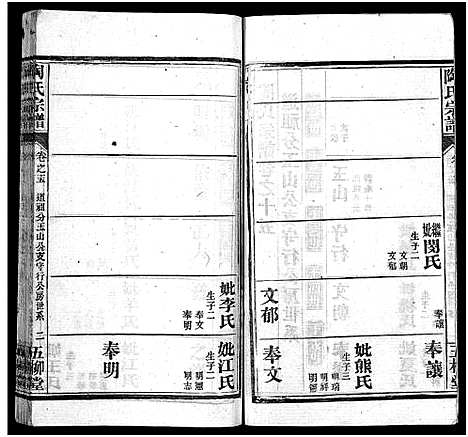 陶氏宗譜
五柳堂
繼妣閔氏
生子二
文朝
文郁
奉讓
奉讓
妣熊氏
生子三
明瑞
明好
明德
文郁
奉文
陶氏宗譜
卷之十五
道祖分玉山公支守行公房世系
二
五柳堂
妣李氏
生子二
奉文
奉明
妣江氏
生子二
明志
奉明